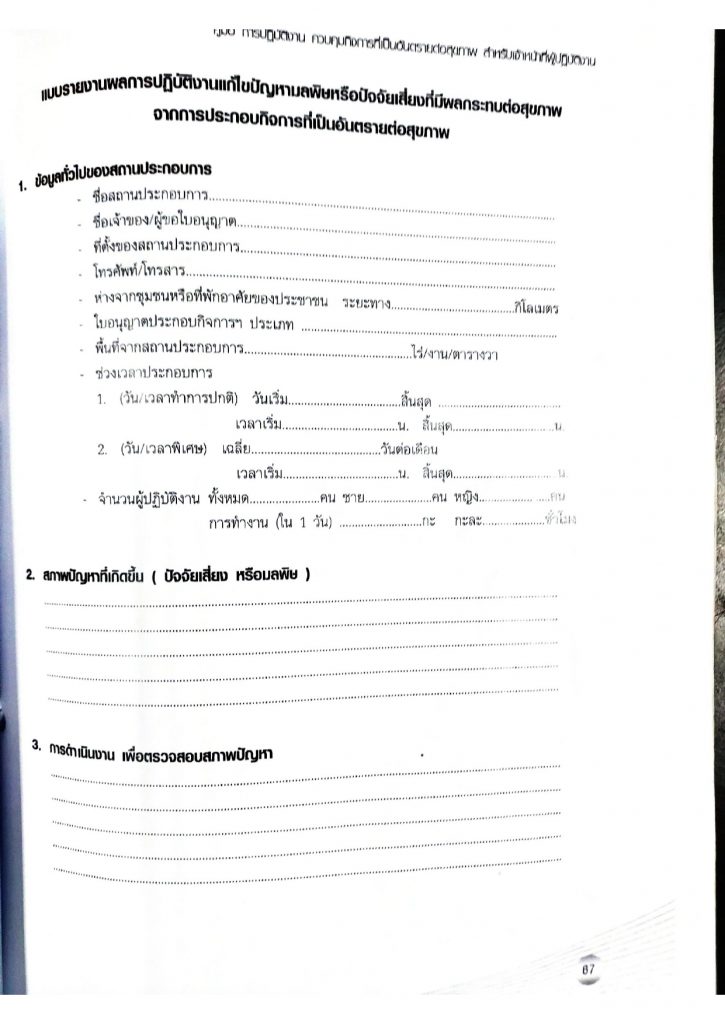 คู่มือ การปฏิบัติงาน ควบคุมกิจการที่เป็นอันตรายต่อสุขภาพ สำหรับเจ้าหน้าที่ผู้ปฏิบัติงาน
แบบรายงานผลการปฏิบัติงานแก้ไขปัญหามลพิษหรือปัจจัยเสี่ยงที่มีผลกระทบต่อสุขภาพ
จากการประกอบกิจการที่เป็นอันตรายต่อสุขภาพ
1. ข้อมูลทั่วไปของสถานประกอบการ
- ชื่อสถานประกอบการ........................................
- ชื่อเจ้าของ/ผู้ขอใบอนุญาต........................................
- ที่ตั้งของสถานประกอบการ........................................
- โทรศัพท์/โทรสาร........................................
- ห่างจากชุมชนหรือที่พักอาศัยของประชาชน ระยะทาง....................กิโลเมตร
- ใบอนุญาตประกอบกิจการฯ ประเภท ........................................
- พื้นที่จากสถานประกอบการ........................................ไร่/งาน/ตารางวา
- ช่วงเวลาประกอบการ
1. (วัน/เวลาทำการปกติ) วันเริ่ม....................สิ้นสุด ....................
เวลาเริ่ม....................น. สิ้นสุด....................น.
2. (วัน/เวลาพิเศษ) เฉลี่ย....................วันต่อเดือน
เวลาเริ่ม....................น. สิ้นสุด....................น.
- จำนวนผู้ปฏิบัติงาน ทั้งหมด...............คน ชาย...............คน หญิง...............คน
การทำงาน (ใน 1 วัน) ....................กะ กะละ...............ชั่วโมง
2. สภาพปัญหาที่เกิดขึ้น ( ปัจจัยเสี่ยง หรือมลพิษ )
3. การดำเนินงาน เพื่อตรวจสอบสภาพปัญหา
67